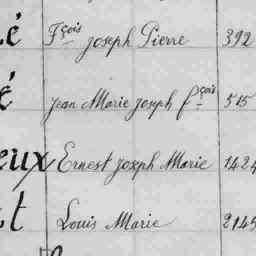 é Fçois Joseph Pierre 392
é Jean Marie Joseph fçois 515
eux Ernest Joseph Marie 1424
t Louis Marie 2145